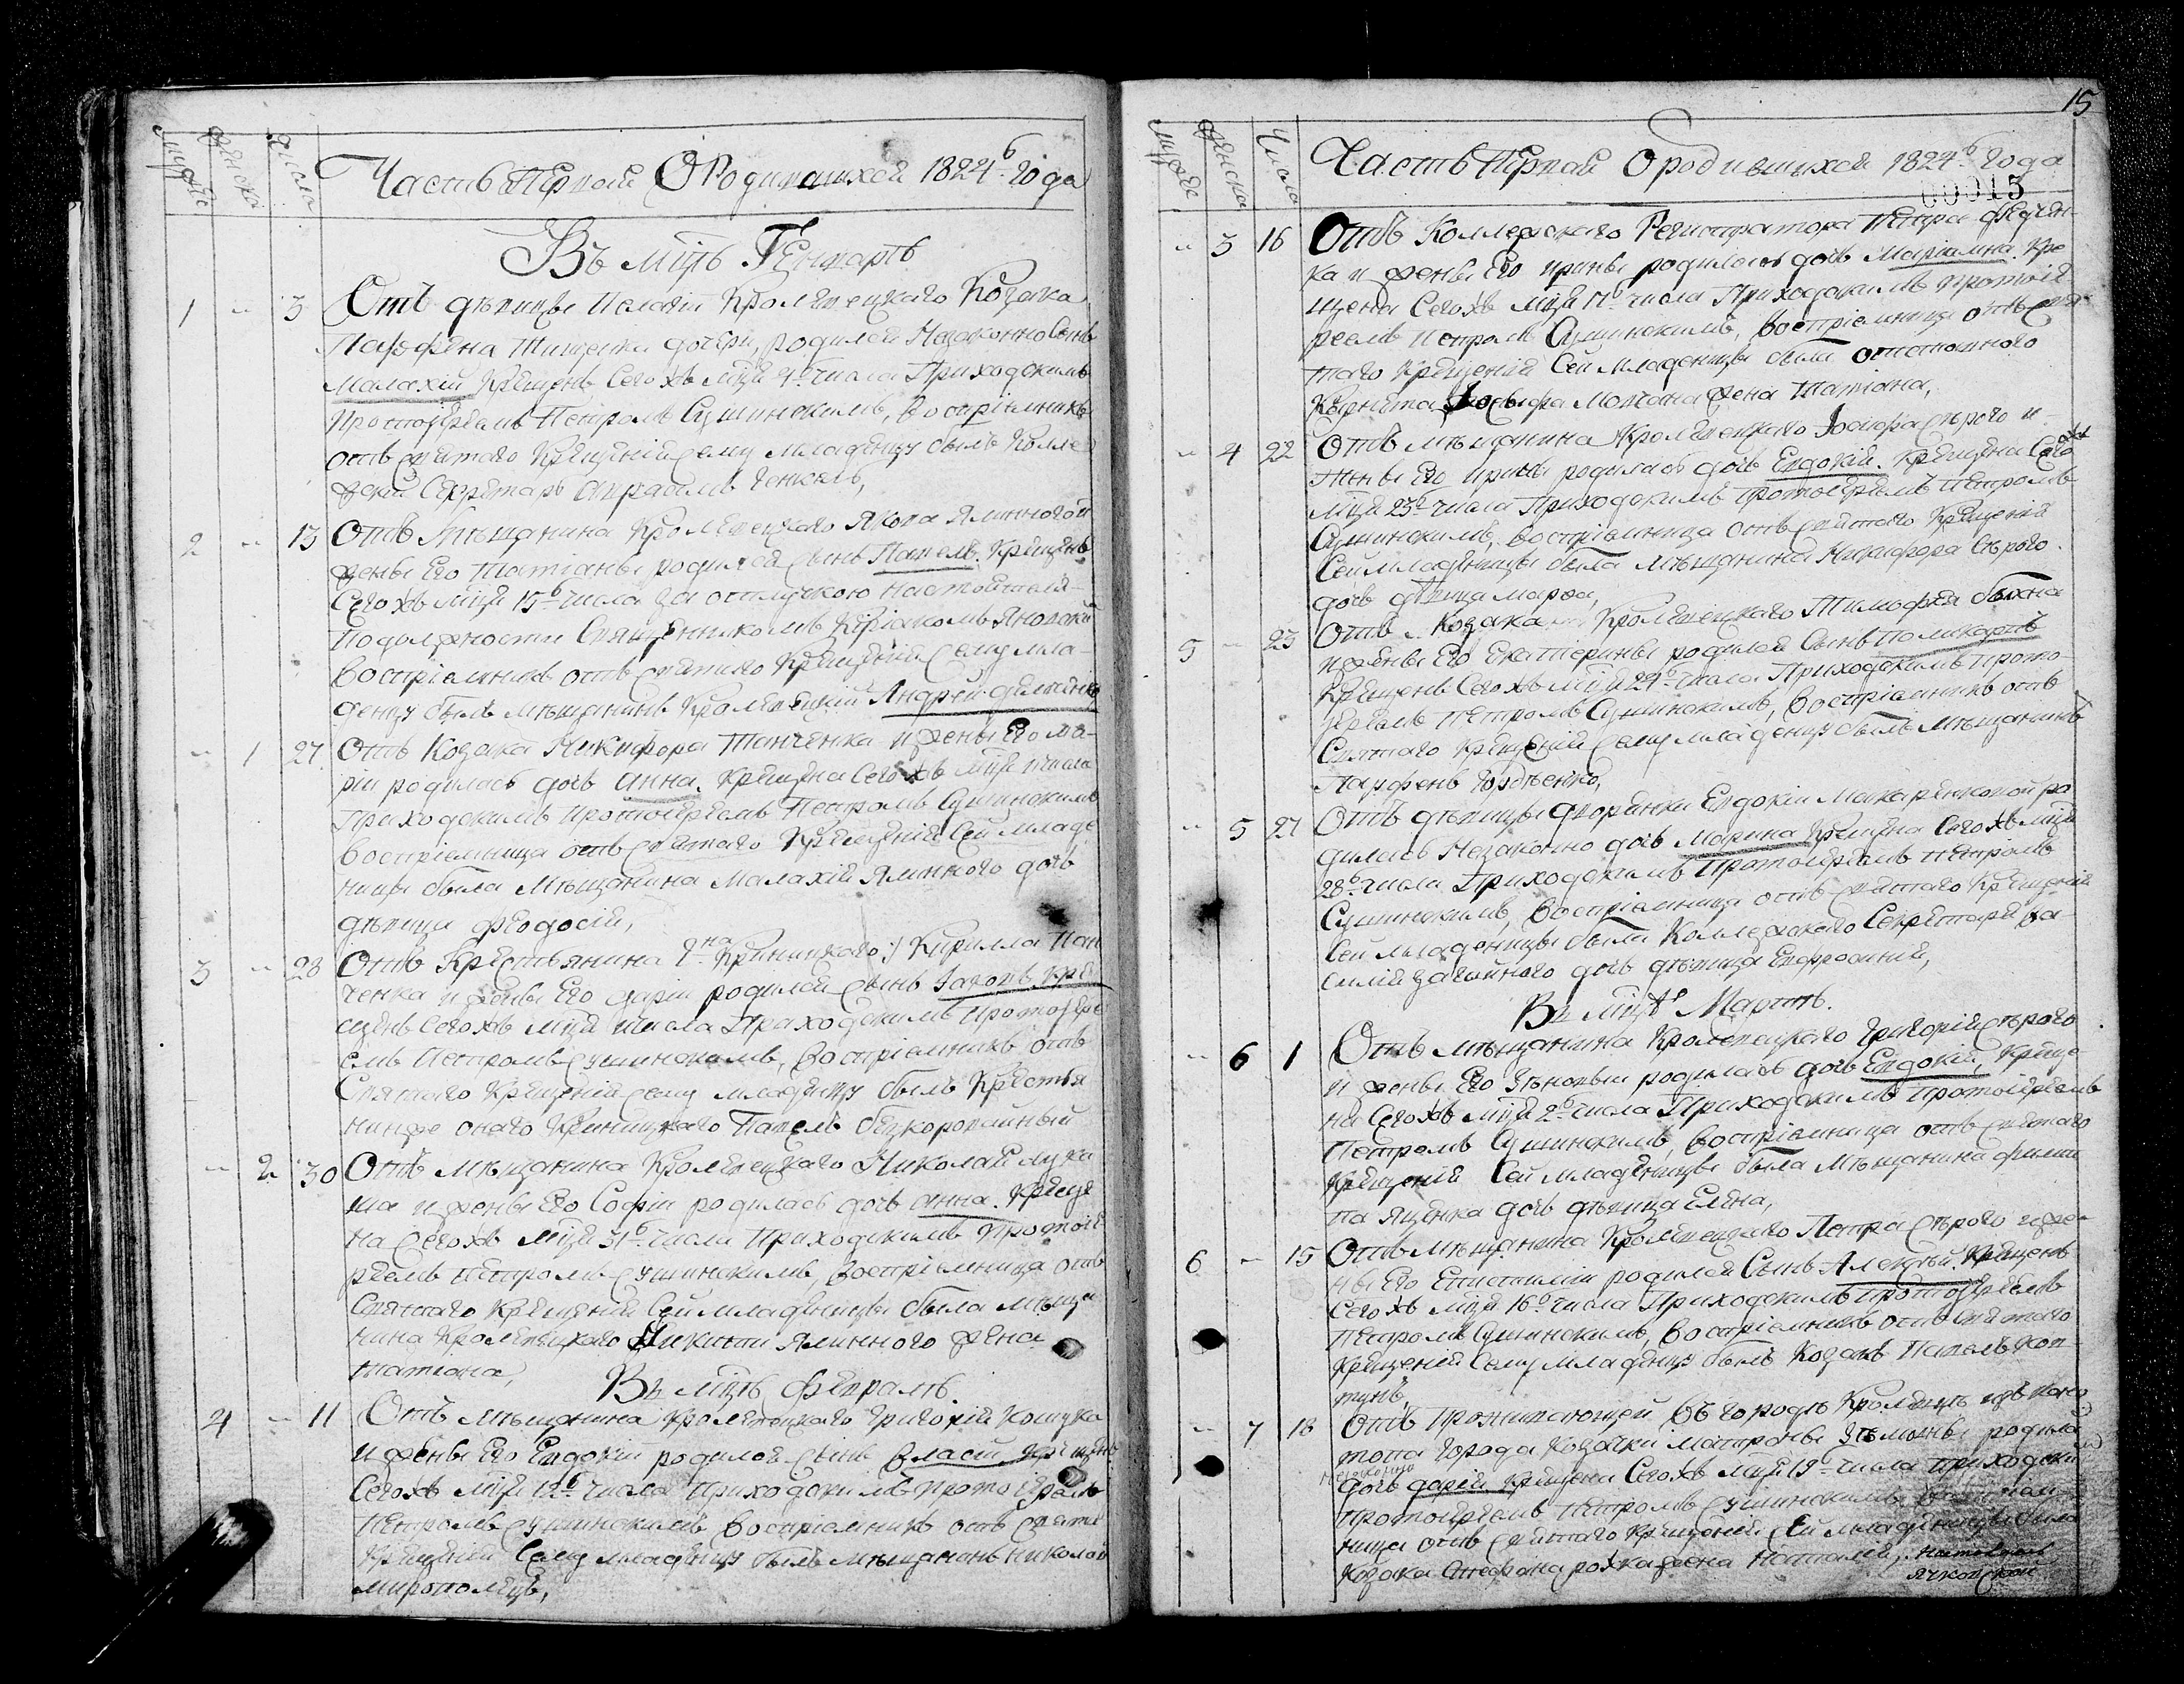 мужеска
женска
Числа
Часть Первая О Родившихся 1824го Года
Въ мцѣ Генварѣ
1 " 3 Отъ дѣвицы Пелагіи Кролевецкаго Козака
Парфена Тищенка дочери, родился Незаконно Сынъ
Малахій Крещенъ Сегожъ мця 4го числа Приходскимъ
Протоіереемъ Петромъ Сушинскимъ, Воспріемникъ
отъ святаго Крещенія сему младенцу былъ Колле-
жскій Секретарь
2 " 13 Отъ Мѣщанина Кролевецкаго Якова Ялинного и
жены Его Татіаны родился сынъ Павелъ. Крещенъ
Сегожъ мця 15го числа за отлучкою настоятеля
По должности Священникомъ Яновскимъ
Воспріемникъ отъ святаго Крещенія сему мла-
денцу былъ мѣщанинъ Кролевецкій Андрей
" 1 27 Отъ Козака Никифора Танченка и жены Его Ма-
ріи родилась дочь Анна. Крещена Сегожъ мця числа
Приходскимъ Протоіереемъ Петромъ Сушинскимъ
Воспріемница отъ святаго Крещенія Сей младе-
ницы была Мѣщанина Малахія Ялинного дочь
дѣвица Феодосія,
3 " 28 Отъ Крестьянина Г-на Криницкаго Кирилла Пан-
ченка и жены Его Даріи родился сынъ Іаковъ. Кре-
щенъ Сегожъ мця числа Приходскимъ Протоіере-
емъ Петромъ Сушинскимъ, Воспріемникъ отъ
Святаго Крещенія сему младенцу былъ Крестья-
нинъ же онаго Криницкаго Павелъ Безкоровайный
" 2 30 Отъ Мѣщанина Кролевецкаго Николая Лука-
ша и жены Его Софіи родилась дочь Анна. Креще-
на Сегожъ мця 31го числа Приходскимъ Протоіе-
реемъ Петромъ Сушинскимъ, Воспріемница отъ
Святаго Крещенія Сей младеницы была мѣща-
нина Кролевецкаго Никиты Ялинного жена
Татіана,
Въ мцѣ Февралѣ.
4 " 11 Отъ Мѣщанина Кролевецкаго Григорія Кошука
и жены Его Евдокіи родился сынъ Власій Крещенъ
Сегожъ мця 12го числа Приходскимъ Протоіереемъ
Петромъ Сушинскимъ Воспріемникъ отъ святаго
Крещенія Сему младенцу былъ мѣщанинъ Николай
Мирополецъ,
15
мужеска
женска
Числа
Часть Первая О родившихся 1824го Года
00015
" 3 16 Отъ Коллежскаго Регистратора Петра Федчен-
ка и жены Его Ирины родилась дочь Маріамна. Кре-
щена Сегожъ мця 17го числа Приходскимъ Протоіе-
реемъ Петромъ Сушинскимъ, Воспріемница отъ свя-
таго Крещенія Сей младеницы была отставного
Корнета Іосифа Молчана жена Татіана,
" 4 22 Отъ мѣщанина Кролевецкаго Іосифа Сѣрого и
жены Его Ирины родилась дочь Евдокія. Крещена Сегожъ
мця 23го числа Приходскимъ Протоіереемъ Петромъ
Сушинскимъ, Воспріемница отъ святаго Крещенія
Сей младеницы была мѣщанина Никифора Сѣрого
дочь дѣвица Марфа,
5 " 23 Отъ Козака Кролевецкаго Тимофея
и жены Его Екатерины родился Сынъ Поликарпъ
Крещенъ Сегожъ мця 24го числа Приходскимъ Прото-
іереемъ Петромъ Сушинскимъ, Воспріемникъ отъ
Святаго Крещенія сему младенцу былъ мѣщанинъ
Парфенъ Гордѣенко,
" 5 27 Отъ дѣвицы дворянки Евдокіи Макаренковой ро-
дилась Незаконно дочь Марина Крещена Сегожъ мця
28го числа Приходскимъ Протоіереемъ Петромъ
Сушинскимъ, Воспріемница отъ святаго Крещенія
Сей младеницы была Коллежскаго Секретаря Ва-
силія дочь дѣвица Евфросинія,
Въ мцѣ Мартѣ.
" 6 1 Отъ мѣщанина Кролевецкаго Григорія Сѣрого
и жены Его Зѣновіи родилась дочь Евдокія, Креще-
на Сегожъ мця 2го числа Приходскимъ Протоіереемъ
Петромъ Сушинскимъ, Воспріемница отъ святаго
Крещенія Сей младеницы была мѣщанина Филип-
па Яценка дочь дѣвица Елена,
6 " 15 Отъ мѣщанина Кролевецкаго Петра Сѣрого и же-
ны Его Епистиміи родился Сынъ Алексѣй. Крещенъ
Сегожъ мця 16го числа Приходскимъ Протоіереемъ
Петромъ Сушинскимъ, Воспріемникъ отъ святаго
Крещенія Сему младенцу былъ Козакъ Павелъ Ков-
тунъ,
" 7 18 Отъ Проживающей въ городѣ Кролевцѣ изъ Коно-
топа города Козачки Матроны родила
Незаконно
дочь Дарія Крещена Сегожъ мця 19го числа Приходским
Протоіереемъ Петромъ Сушинскимъ
ница отъ святаго Крещенія Сей младеницы была
Козака Стефана жена Наталія,